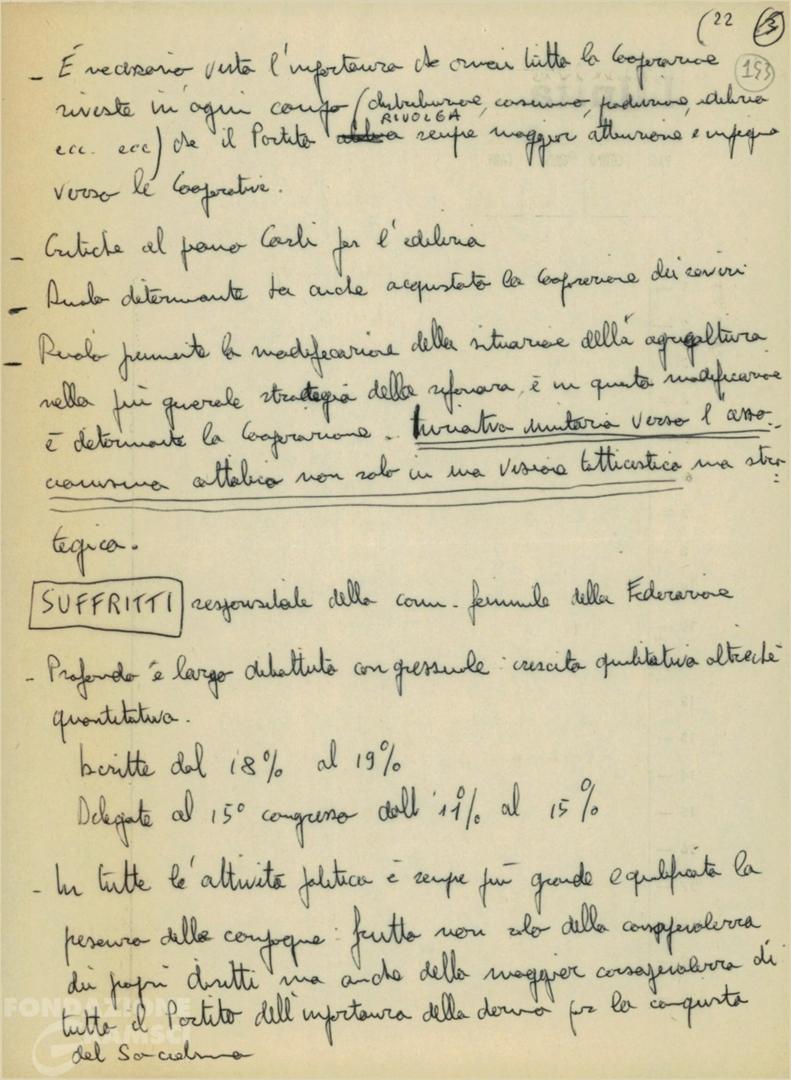 (22 3
153
- È necessario vista l'importanza che ormai tutta la Cooperazione
riveste in ogni campo (distribuzione, consumo, produzione, edilizia
ecc. ecc) che il Partito RIVOLGA sempre maggior attenzione e impegno
verso le Cooperative.
- Critiche al piano Carli per l'edilizia
- Ruolo determinante ha anche acquistato la Cooperazione dei servizi
- Ruolo permanente la modificazione della situazione della agricoltura
nella più generale strategia della riforma, è in questa modificazione
è determinante la Cooperazione. Iniziativa unitaria verso l'asso-
ciazionismo cattolico non solo in una visione tatticistica ma stra-
tegica.
SUFFRITTI responsabile della comm. femminile della Federazione
- Profondo e largo dibattuto congressuale: crescita qualitativa oltreché
quantitativa.
Iscritte dal 18% al 19%
Delegate al 15° congresso dall'11% al 15%
- In tutte le attività politica è sempre più grande e qualificata la
presenza delle compagne: frutto non solo della consapevolezza
dei propri diritti ma anche della maggior consapevolezza di
tutto il Partito dell'importanza della donna per la conquista
del Socialismo
FONDAZIONE
GRAMSCI